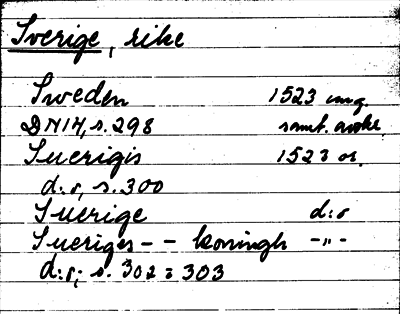 Sverige, rike
Sweden 1523 omg.
DN14, s. 298 samt. avskr.
Suerigis 1523 or.
d:o, s. 300
Suerige d:o
Sueriges - - koningh -"-
d:o, s. 302 = 303